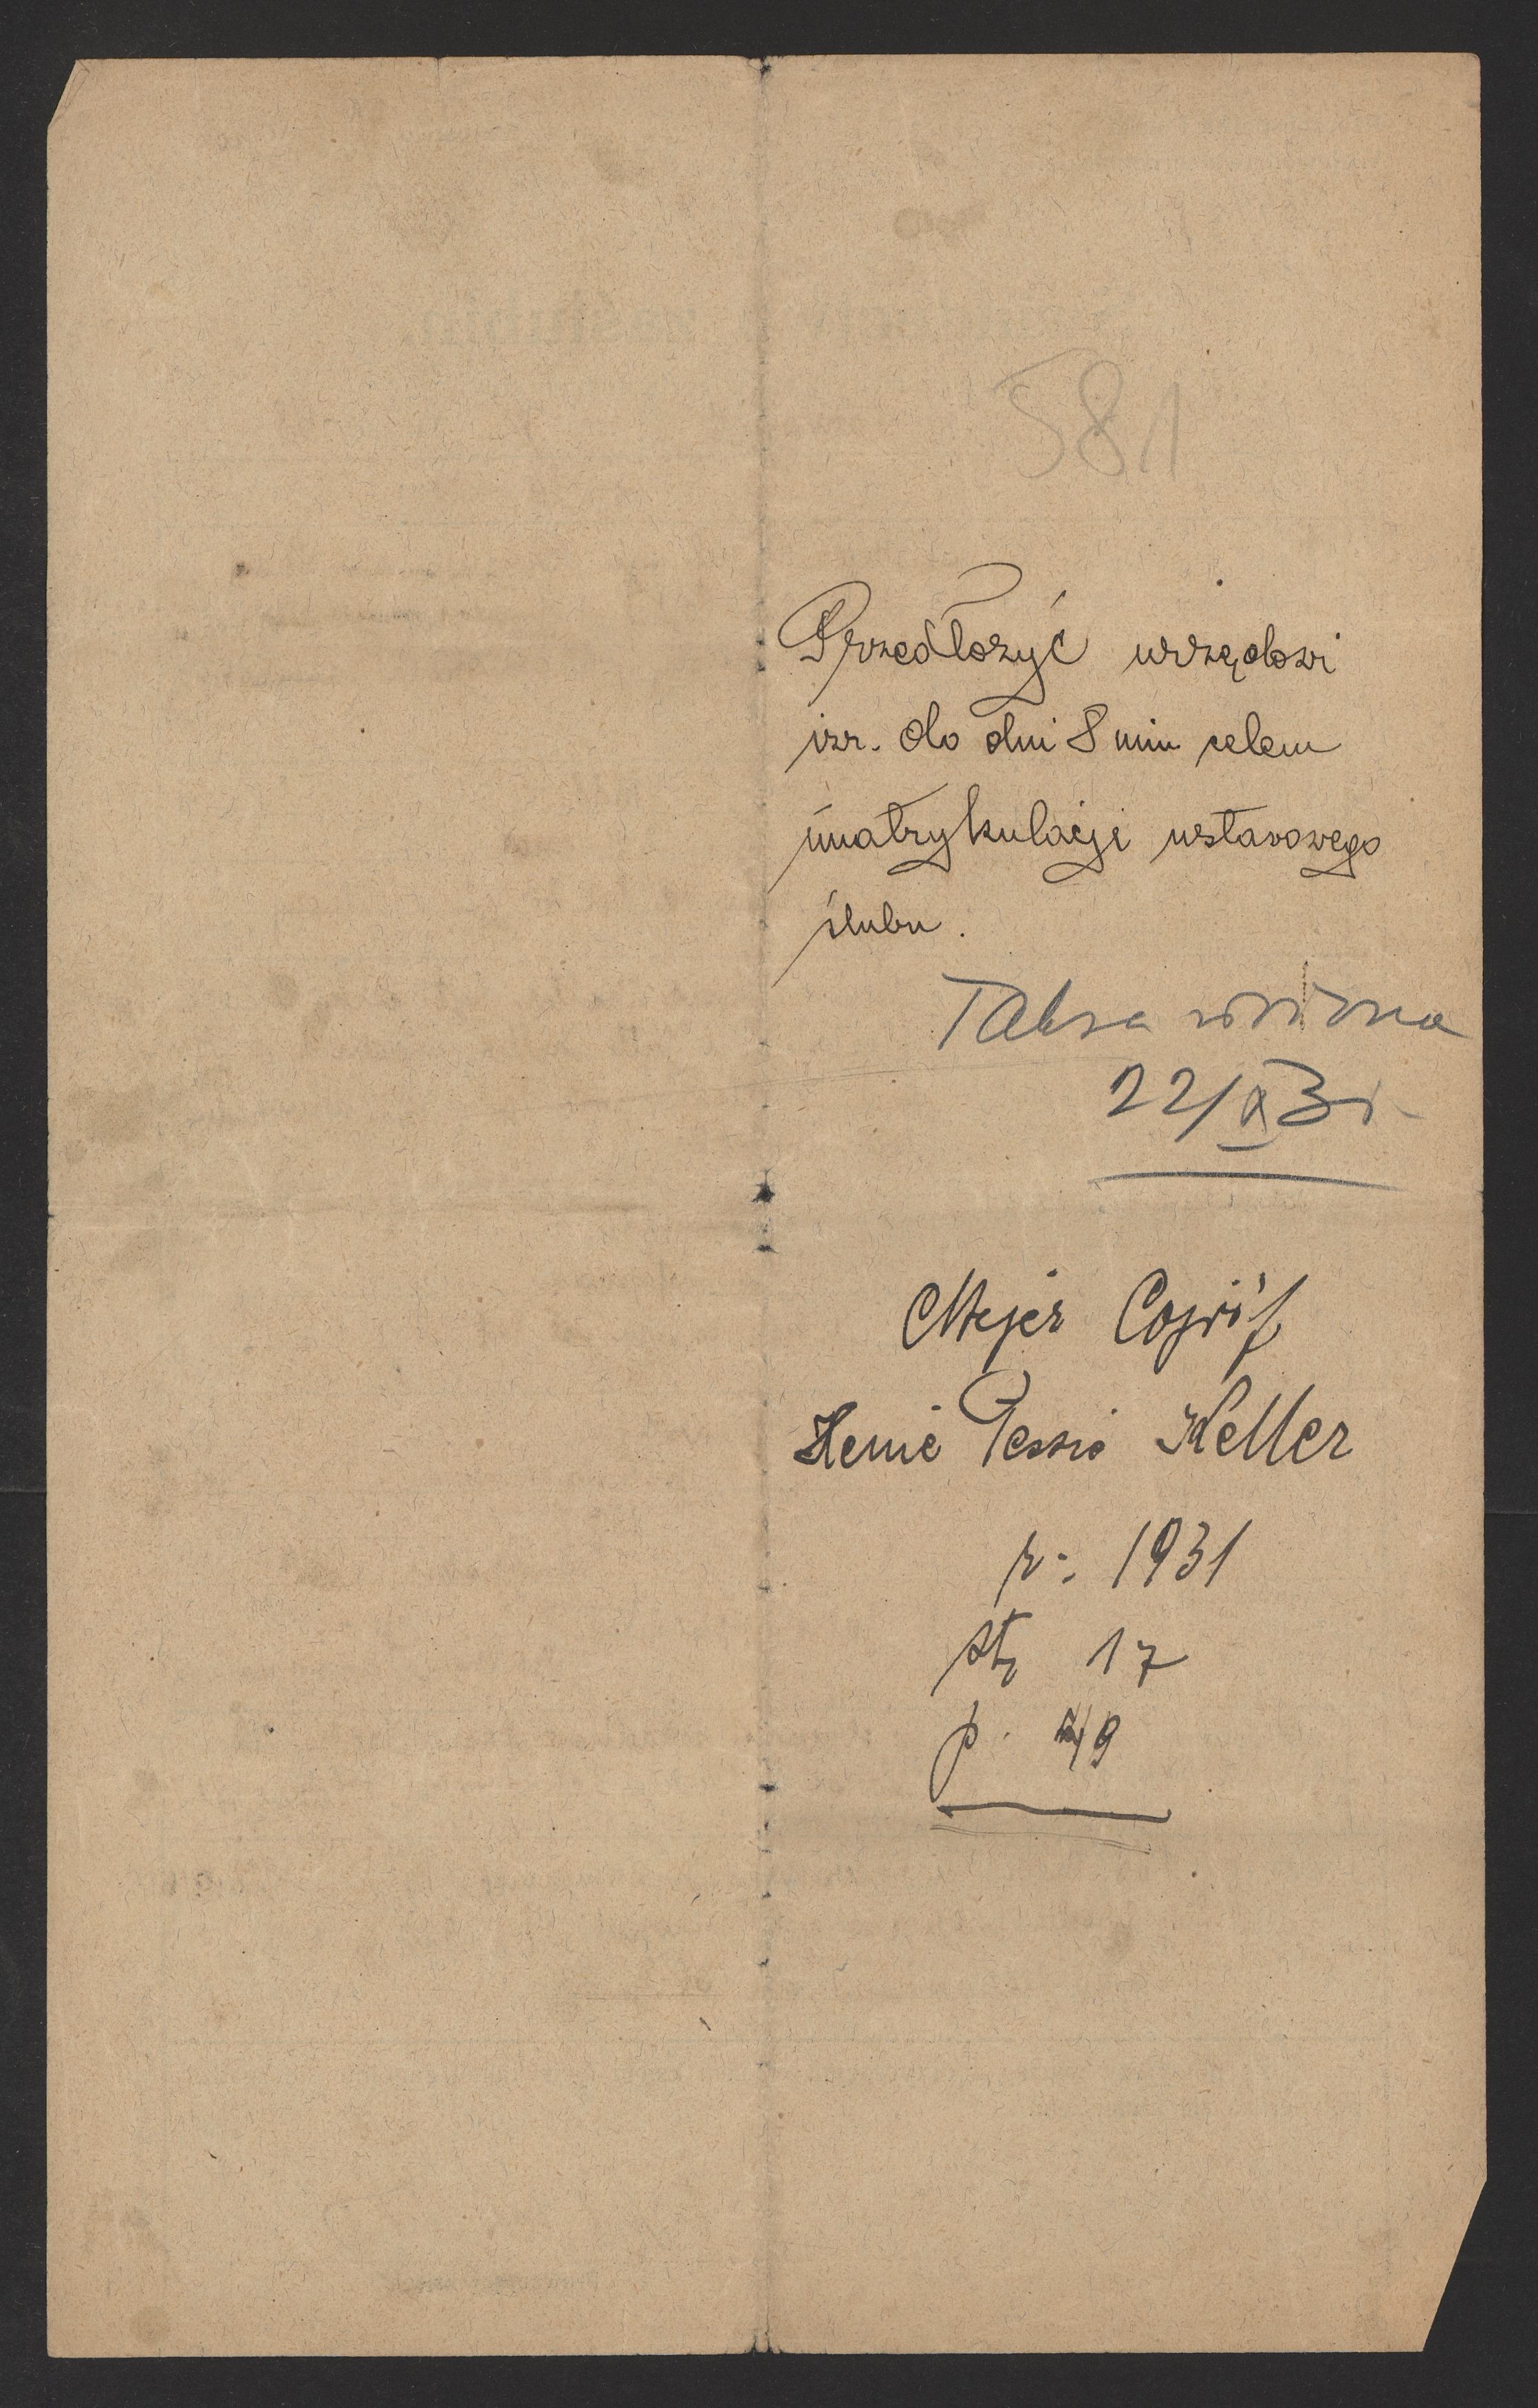 581
Przedłożyć urzędowi
izr. do dni 8 miu celem
imatrykulacji ustawowego
ślubu.
Taksa
22/X 31
Mejer
Henie Pessie Keller
r. 1931
str 17
p. 49